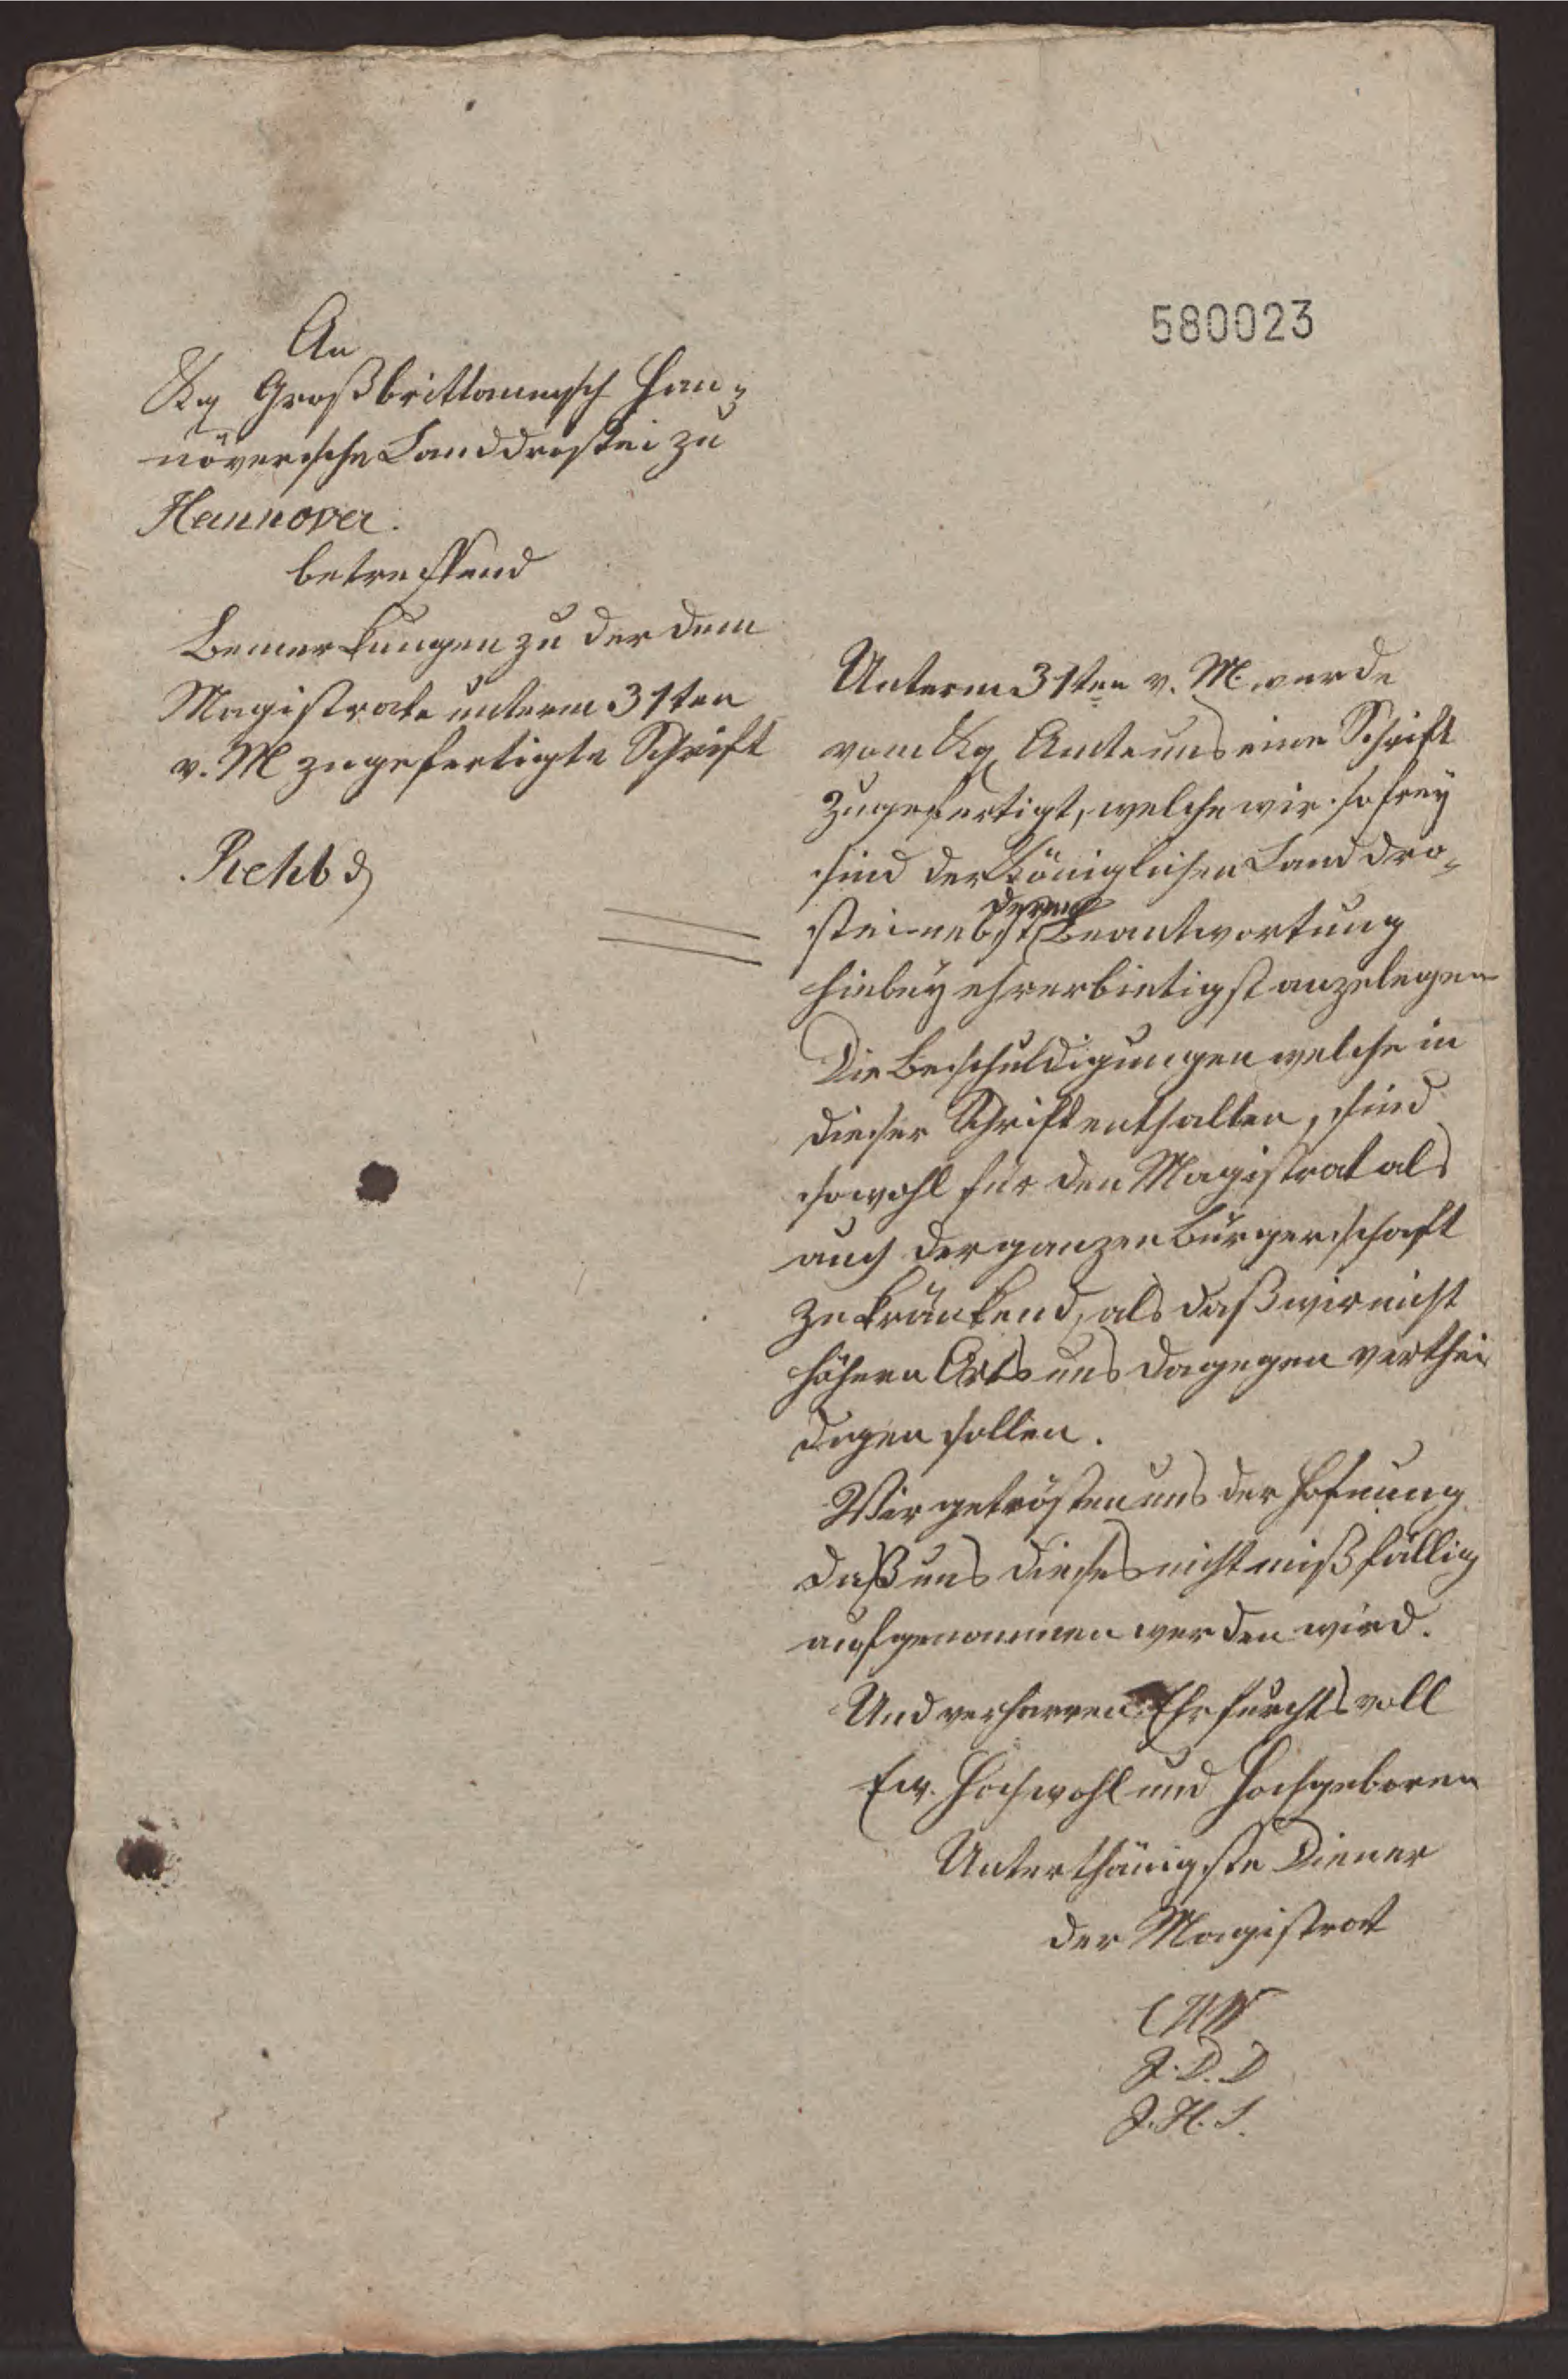 580023
An
Kg Großbrittannisch Han-
növerische Landdrostei zu
Hannover.
betreffend
Bemerkungen zu der dem
Magistrate unterm 31ten
v. M zugefertigte Schrift
Rehb
Unterm 31ten v. M. wurde
vom Kg Amte uns eine Schrift
zugefertigt, welche wir so frey
sind der Königlichen Landdro-
stei nebst deren Beantwortung
hiebey ehrerbietigst anzulegen
Die Beschuldigungen welche in
dieser Schrift enthalten, sind
sowohl für den Magistrat als
auch der ganzen Bürgerschaft
zu kränkend, als daß wir nicht
höhern Orts uns dagegen verthei
digen sollen.
Wir getrösten uns der Hofnung
daß uns dieses nicht mißfällig
aufgenommen werden wird.
Und verharren Ehrfurchtsvoll
Ew. Hochwohl und Hochgeboren
Unterthänigste Diener
der Magistrat
J. D. D
J. H. S.